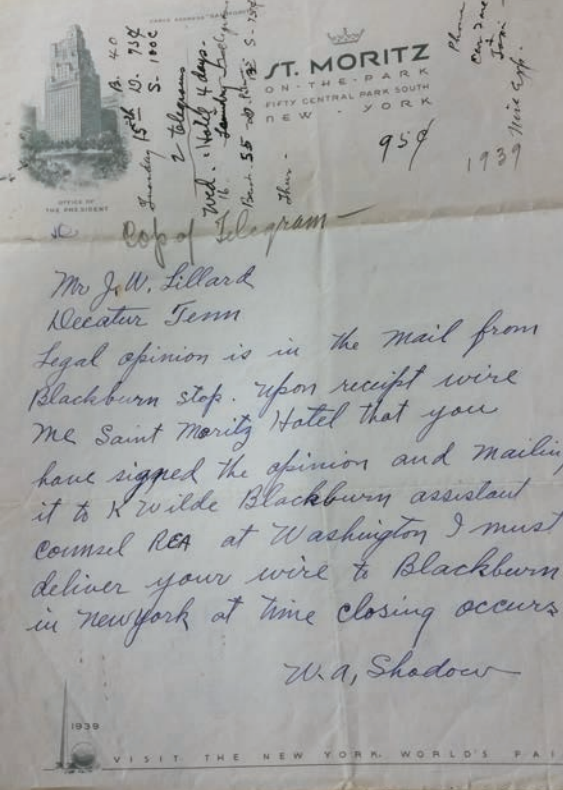 CABLE ADDRESS
ST. MORITZ
ON-THE-PARK
FIFTY CENTRAL PARK SOUTH
NEW - YORK
OFFICE OF
THE PRESIDENT
B. 40
15th D. 75¢
S. 100¢
2 telegrams
Wed. Hotel 4 days.
16.
Thur -
Phone
Nice
95¢
1939
Copy of Telegram
Mr J. W. Lillard
Decatur Tenn
Legal opinion is in the mail from
Blackburn stop. Upon receipt wire
me Saint Moritz Hotel that you
have signed the opinion and mailin
it to K Wilde Blackburn assistant
counsel REA at Washington I must
deliver your wire to Blackburn
in Newyork at time closing occurs
W. A, Shadow
1939
VISIT THE NEW YORK WORLD'S FAI